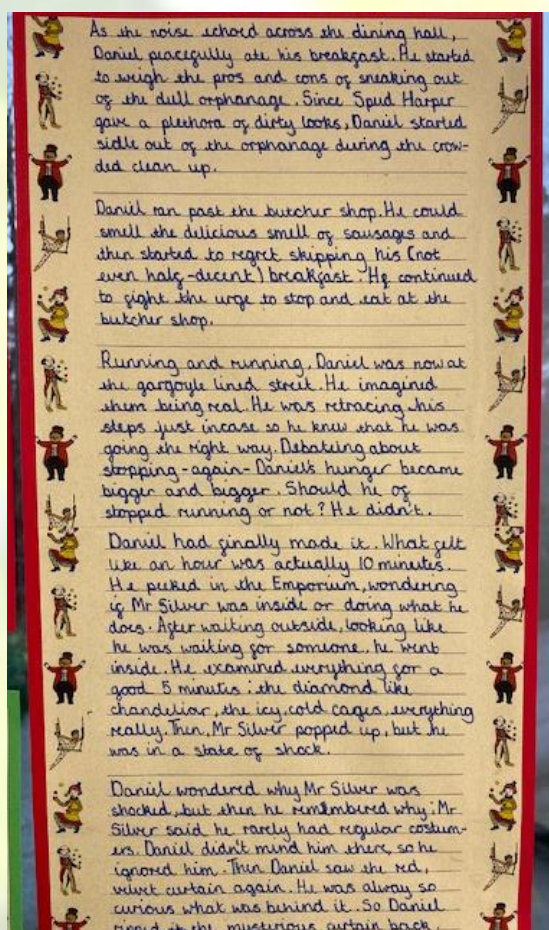 As the noise echoed across the dining hall,
Daniel peacefully ate his breakfast. He started
to weigh the pros and cons of sneaking out
of the dull orphanage. Since Spud Harper
gave a plethora of dirty looks, Daniel started
sidle out of the orphanage during the crow-
ded clean up.
Daniel ran past the butcher shop. He could
smell the delicious smell of sausages and
then started to regret skipping his (not
even half-decent) breakfast. He continued
to fight the urge to stop and eat at the
butcher shop.
Running and running, Daniel was now at
the gargoyle lined street. He imagined
them being real. He was retracing his
steps just incase so he knew that he was
going the right way. Debateing about
stopping-again-Daniel's hunger became
bigger and bigger. Should he of
stopped running or not? He didn't.
Daniel had finally made it. What felt
like an hour was actually 10 minutes.
He peeked in the Emporium, wondering
if Mr Silver was inside or doing what he
does. After waiting outside, looking like
he was waiting for someone, he went
inside. He examined everything for a
good 5 minutes: the diamond like
chandelior, the icy, cold cages, everything
really. Then, Mr Silver popped up, but he
was in a state of shock.
Daniel wondered why Mr Silver was
shocked, but then he remembered why: Mr
Silver said he rarely had regular costum-
ers. Daniel didn't mind him there, so he
ignored him. Then Daniel saw the red,
velvet curtain again. He was alway so
curious what was behind it. So Daniel
it the mysterious curtain back.